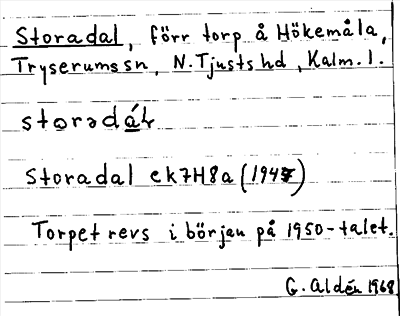 Storadal, förr torp å Hökemåla,
Tryserums sn, N. Tjusts hd, Kalm. l.
storadal ek 7H8a (1947)
Torpet revs i början på 1950-talet.
G. Aldén 1968